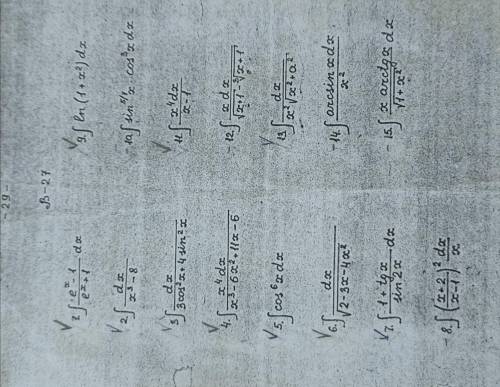 -29-
В-27
√ 1. ∫ (e^x - 1)/(e^x + 1) dx
√ 2. ∫ dx/(x³ - 8)
√ 3. ∫ dx/(3cos²x + 4sin²x)
√ 4. ∫ x⁴dx/(x³ - 6x² + 11x - 6)
√ 5. ∫ cos⁶x dx
√ 6. ∫ dx/√(2 - 3x - 4x²)
√ 7. ∫ (1 + tgx)/(sin2x) dx
- 8. ∫ ((x + 2)/(x - 1))² dx/x
√ 9. ∫ ln(1 + x²)dx
- 10. ∫ sin^(3/4)x · cos³x dx
√ 11. ∫ x⁴dx/(x - 1)
- 12. ∫ x dx/(√(x + 1) - ∛(x + 1))
√ 13. ∫ dx/(x²√(x² + a²))
- 14. ∫ arcsin x dx/x²
- 15. ∫ x arctgx dx/√(1 + x²)